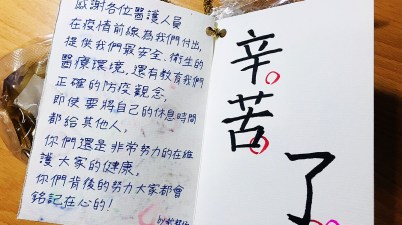 感謝各位醫護人員
在疫情前線為我們付出,
提供我們最安全、衛生的
醫療環境,還有教育我們
正確的防疫觀念,
即使要將自己的休息時間
都給其他人,
你們還是非常努力的在維
護大家的健康,
你們背後的努力大家都會
銘記在心的!
by
辛苦了